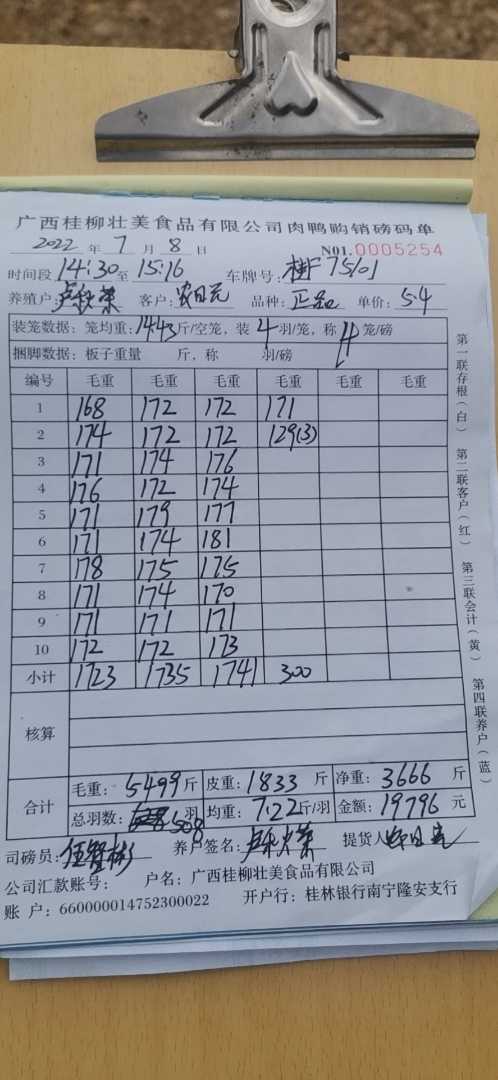 广西桂柳壮美食品有限公司肉鸭购销磅码单
2022 年 7 月 8 日 N01.0005254
时间段 14:30 至 15:16 车牌号: 桂F75101
养殖户: 卢秋荣 客户: 农日元 品种: 正品 单价: 5.4
装笼数据: 笼均重: 14.43 斤/空笼, 装 4 羽/笼, 称 4 笼/磅
捆脚数据: 板子重量 斤, 称 羽/磅
编号 毛重 毛重 毛重 毛重 毛重 毛重
1 168 172 172 171
2 174 172 172 129(3)
3 171 174 176
4 176 172 174
5 171 179 177
6 171 174 181
7 178 175 175
8 171 174 170
9 171 171 171
10 172 172 173
小计 1723 1735 1741 300
核算
合计 毛重: 5499 斤 皮重: 1833 斤 净重: 3666 斤
总羽数: 508 羽 均重: 7.22 斤/羽 金额: 19796 元
司磅员: 养户签名: 卢秋荣 提货人: 农日元
公司汇款账号: 户名: 广西桂柳壮美食品有限公司
账 户: 660000014752300022 开户行: 桂林银行南宁隆安支行
第一联存根(白) 第二联客户(红) 第三联会计(黄) 第四联养户(蓝)